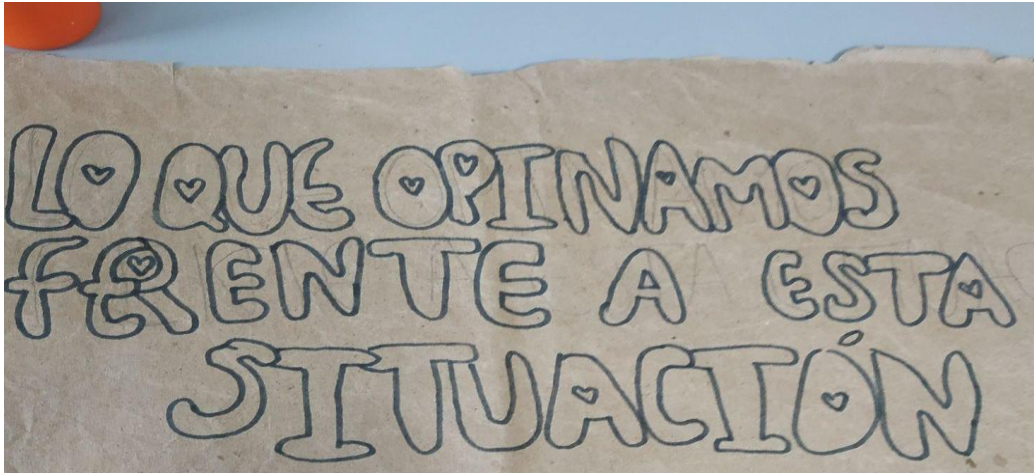 LO QUE OPINAMOS
FRENTE A ESTA
SITUACIÓN